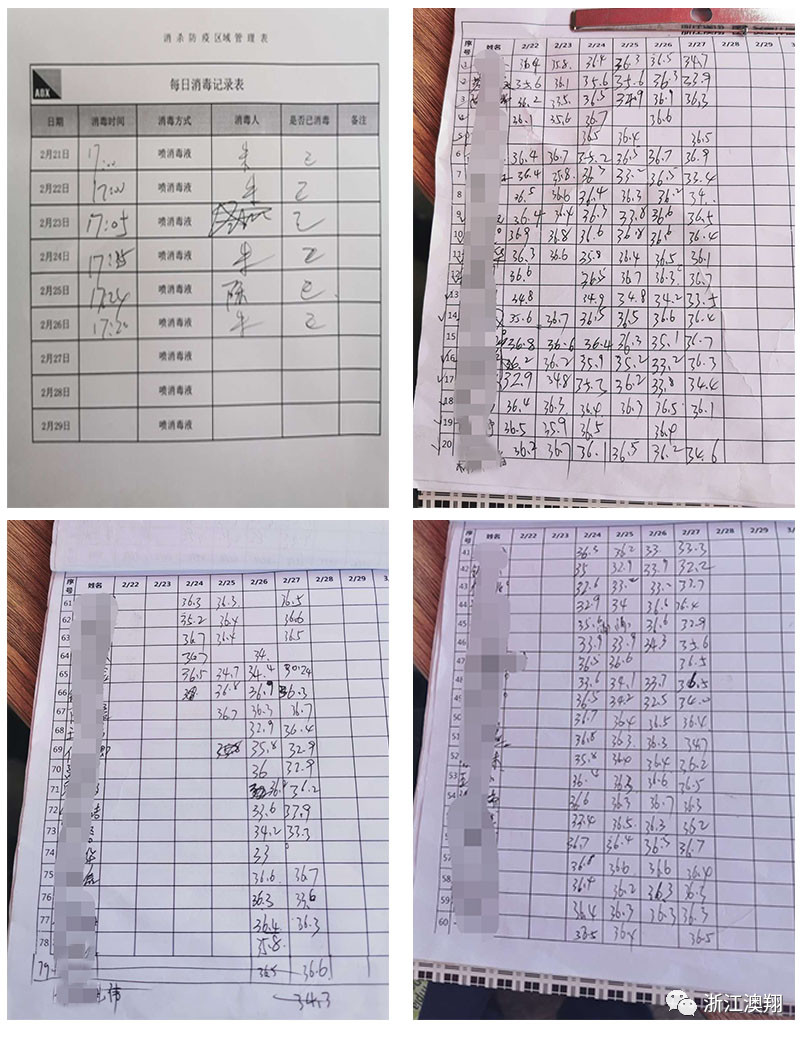 消杀防疫区域管理表
AOX
每日消毒记录表
日期 消毒时间 消毒方式 消毒人 是否已消毒 备注
2月21日 喷消毒液 朱 已
2月22日 17:00 喷消毒液 朱 已
2月23日 17:05 喷消毒液 已
2月24日 喷消毒液 朱 已
2月25日 17:24 喷消毒液 陈 已
2月26日 17:20 喷消毒液 朱 已
2月27日 喷消毒液
2月28日 喷消毒液
2月29日 喷消毒液
序号 姓名 2/22 2/23 2/24 2/25 2/26 2/27 2/28 2/29
1 36.4 35.8 36.4 36.3 36.5 34.7
2 35.6 36.1 35.6 35.6 36.3 33.9
3 36.2 33.5 36.5 32.9 36.9 36.3
4 36.1 35.6 36.7 36.6
36.5 36.4 36.5
6 36.4 36.7 35.2 36.5 36.7 36.9
7 36.4 35.8 36.3 33.2 36.5 33.4
8 36.5 36.6 36.4 36.3 36.2
9 36.4 36.4 36.3 33.8 36.6 36.5
10 36.9 36.8 36.6 36.8 36.6 36.4
11 36.3 36.6 35.8 36.4 36.5 36.1
12 36.6 36.5 36.7 36.3 36.7
13 34.8 34.9 34.8 34.2 33.5
14 35.6 36.7 36.5 36.5 36.6 36.4
15 36.8 36.6 36.4 36.3 35.1 36.7
16 36.2 36.2 35.9 35.2 33.2 36.3
17 32.9 34.8 35.2 36.2 33.8 34.4
18 36.4 36.3 36.4 36.3 36.5 36.1
19 36.5 35.9 36.5 36.4
20 36.2 36.7 36.1 36.5 36.2 34.6
序号 姓名 2/22 2/23 2/24 2/25 2/26 2/27 2/28 2/29
61 36.3 36.3 36.5
62 35.2 36.4 36.6
63 36.7 36.4 36.5
64 36.7 34.
65 36.5 34.7 34.4
66 36.8 36.9 36.3
67 36.7 36.3 36.7
68 32.9 36.4
69 35.8 32.9
70 36 32.9
71 36.2
72 33.6 37.9
73 34.2 33.3
74 33
36.6 36.7
76 36.3 33.6
77 36.4 36.3
78 35.8
79 36.5 36.6
伟 34.3
序号 姓名 2/22 2/23 2/24 2/25 2/26 2/27 2/28 2/29
41 36.3 36.2 33. 33.3
42 35 32.9 33.9 32.2
43 32.6 33.7
44 32.9 34 36.6 36.4
45 35.6 36.6 32.9
46 33.9 33.9 34.3 35.6
47 36.5 36.6 36.5
48 33.6 34.1 33.7 36.5
49 36.5 34.2 32.5 34.0
50 36.7 36.4 36.5 36.4
51 36.8 36.3 36.3 34.7
52 35.8 36.0 36.4 36.2
53 36.3 36.6 36.5
54 36.6 36.3 36.7 36.3
33.4 36.5 36.3 36.2
36.7 36.4 36.3 36.7
57 36.8 36.6 36.6 36.4
58 36.4 36.2 36.3 36.3
59 36.4 36.3 36.3 36.3
60 36.5 36.4 36.5
浙江澳翔